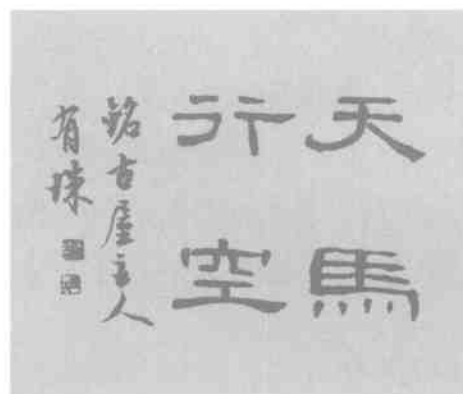 天馬
行空
銘古屋主人
有瑓